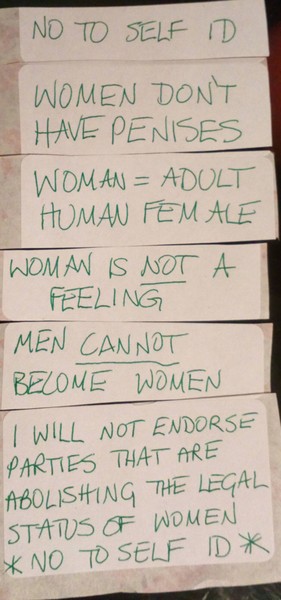 NO TO SELF ID
WOMEN DON'T
HAVE PENISES
WOMAN = ADULT
HUMAN FEMALE
WOMAN IS NOT A
FEELING
MEN CANNOT
BECOME WOMEN
I WILL NOT ENDORSE
PARTIES THAT ARE
ABOLISHING THE LEGAL
STATUS OF WOMEN
* NO TO SELF ID *